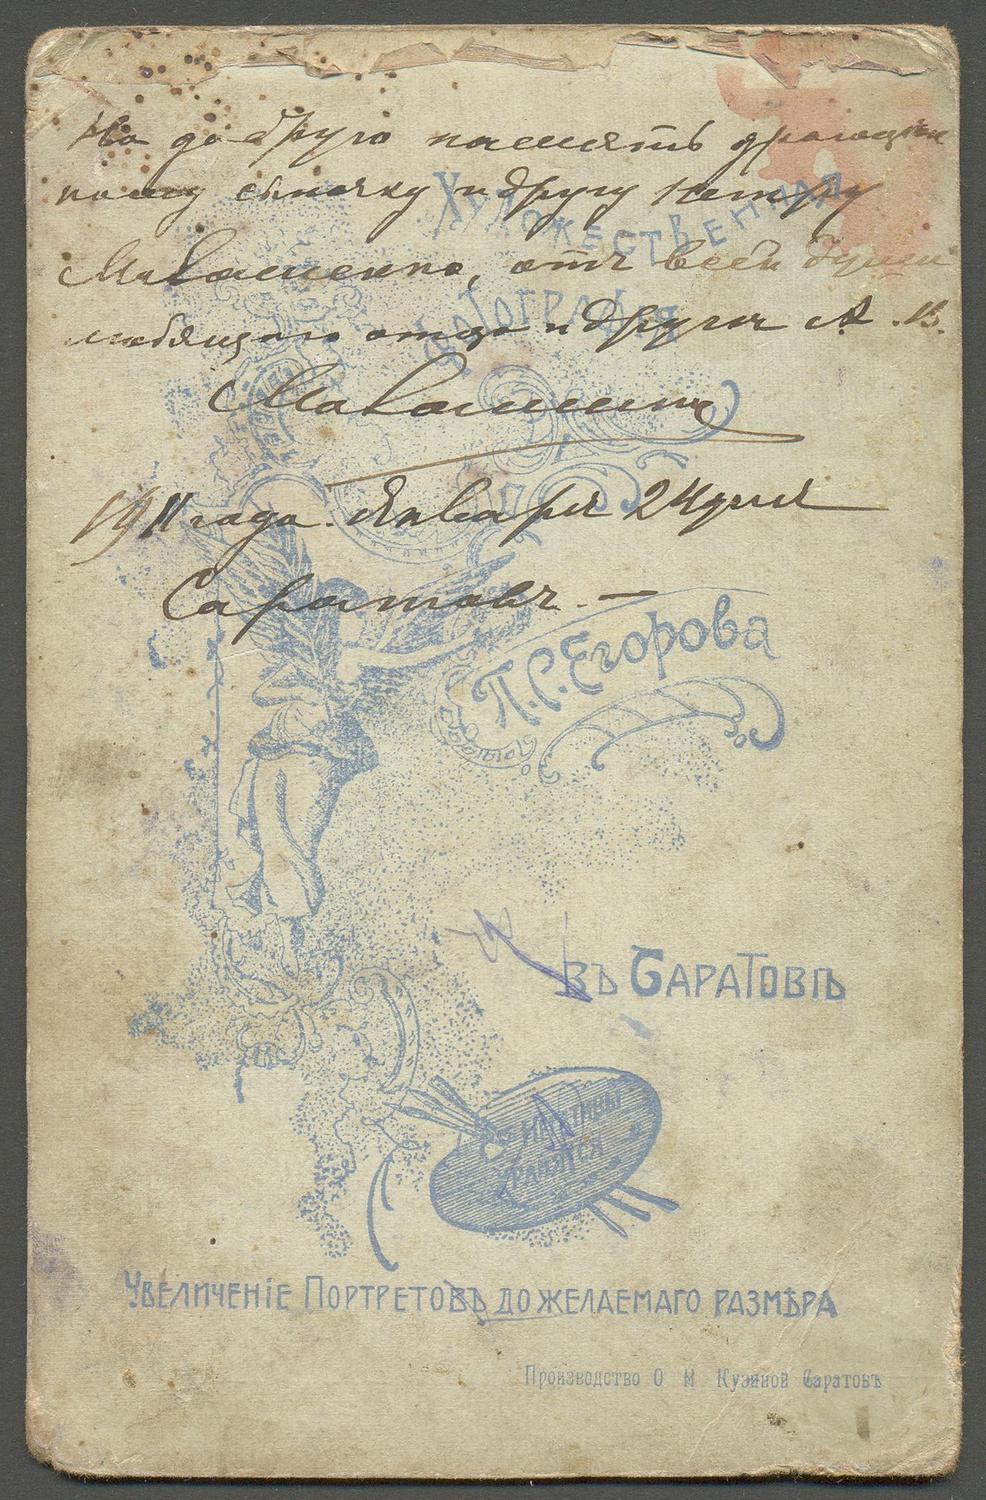 На добрую память драгоцѣн
ному сыночку и другу Петру
Мивошенко, отъ всей души
любящаго отца и друга А. В.
1911 года. Января 24 дня
Саратовъ. —
Художественная
Фотография
П. С. Егорова
въ Саратовѣ
Негативы
хранятся
Увеличеніе Портретовъ до желаемаго размѣра
Производство О М Кузиной Саратовъ